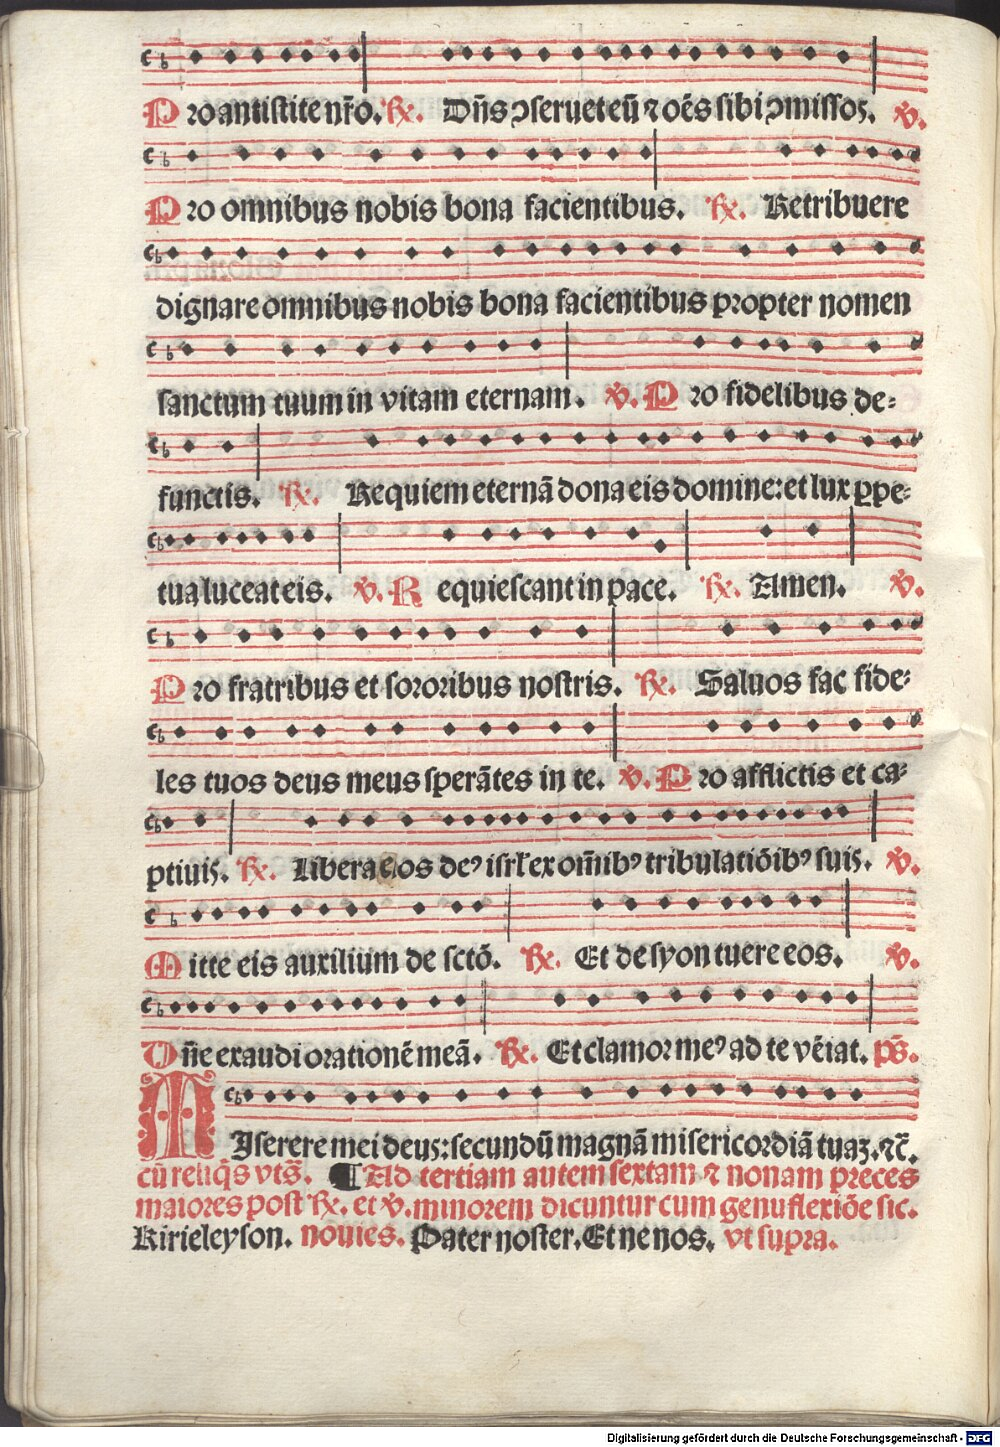 Pro antistite nr̄o. ℟. Dn̄s ↄseruet eū ⁊ oēs sibi ↄmissos. ℣.
Pro omnibus nobis bona facientibus. ℟. Retribuere
dignare omnibus nobis bona facientibus propter nomen
sanctum tuum in vitam eternam. ℣. Pro fidelibus de⸗
functis. ℟. Requiem eternā dona eis domine: et lux ꝑpe⸗
tua luceat eis. ℣. Requiescant in pace. ℟. Amen. ℣.
Pro fratribus et sororibus nostris. ℟. Saluos fac fide⸗
les tuos deus meus sperātes in te. ℣. Pro afflictis et ca⸗
ptiuis. ℟. Libera eos deꝰ isrl̄ ex om̄ibꝰ tribulatiōibꝰ suis. ℣.
Mitte eis auxilium de sctō. ℟. Et de syon tuere eos. ℣.
Dn̄e exaudi orationē meā. ℟. Et clamor meꝰ ad te vēiat. ps̄.
MIserere mei deus: secundū magnā misericordiā tuaꝫ. ⁊c̄.
cū reliq̄s vts̄. ¶ Ad tertiam autem sextam ⁊ nonam preces
maiores post ℟. et ℣. minorem dicuntur cum genuflexiōe sic.
Kirieleyson. nouies. Pater noster. Et ne nos. vt supra.
Digitalisierung gefördert durch die Deutsche Forschungsgemeinschaft - DFG